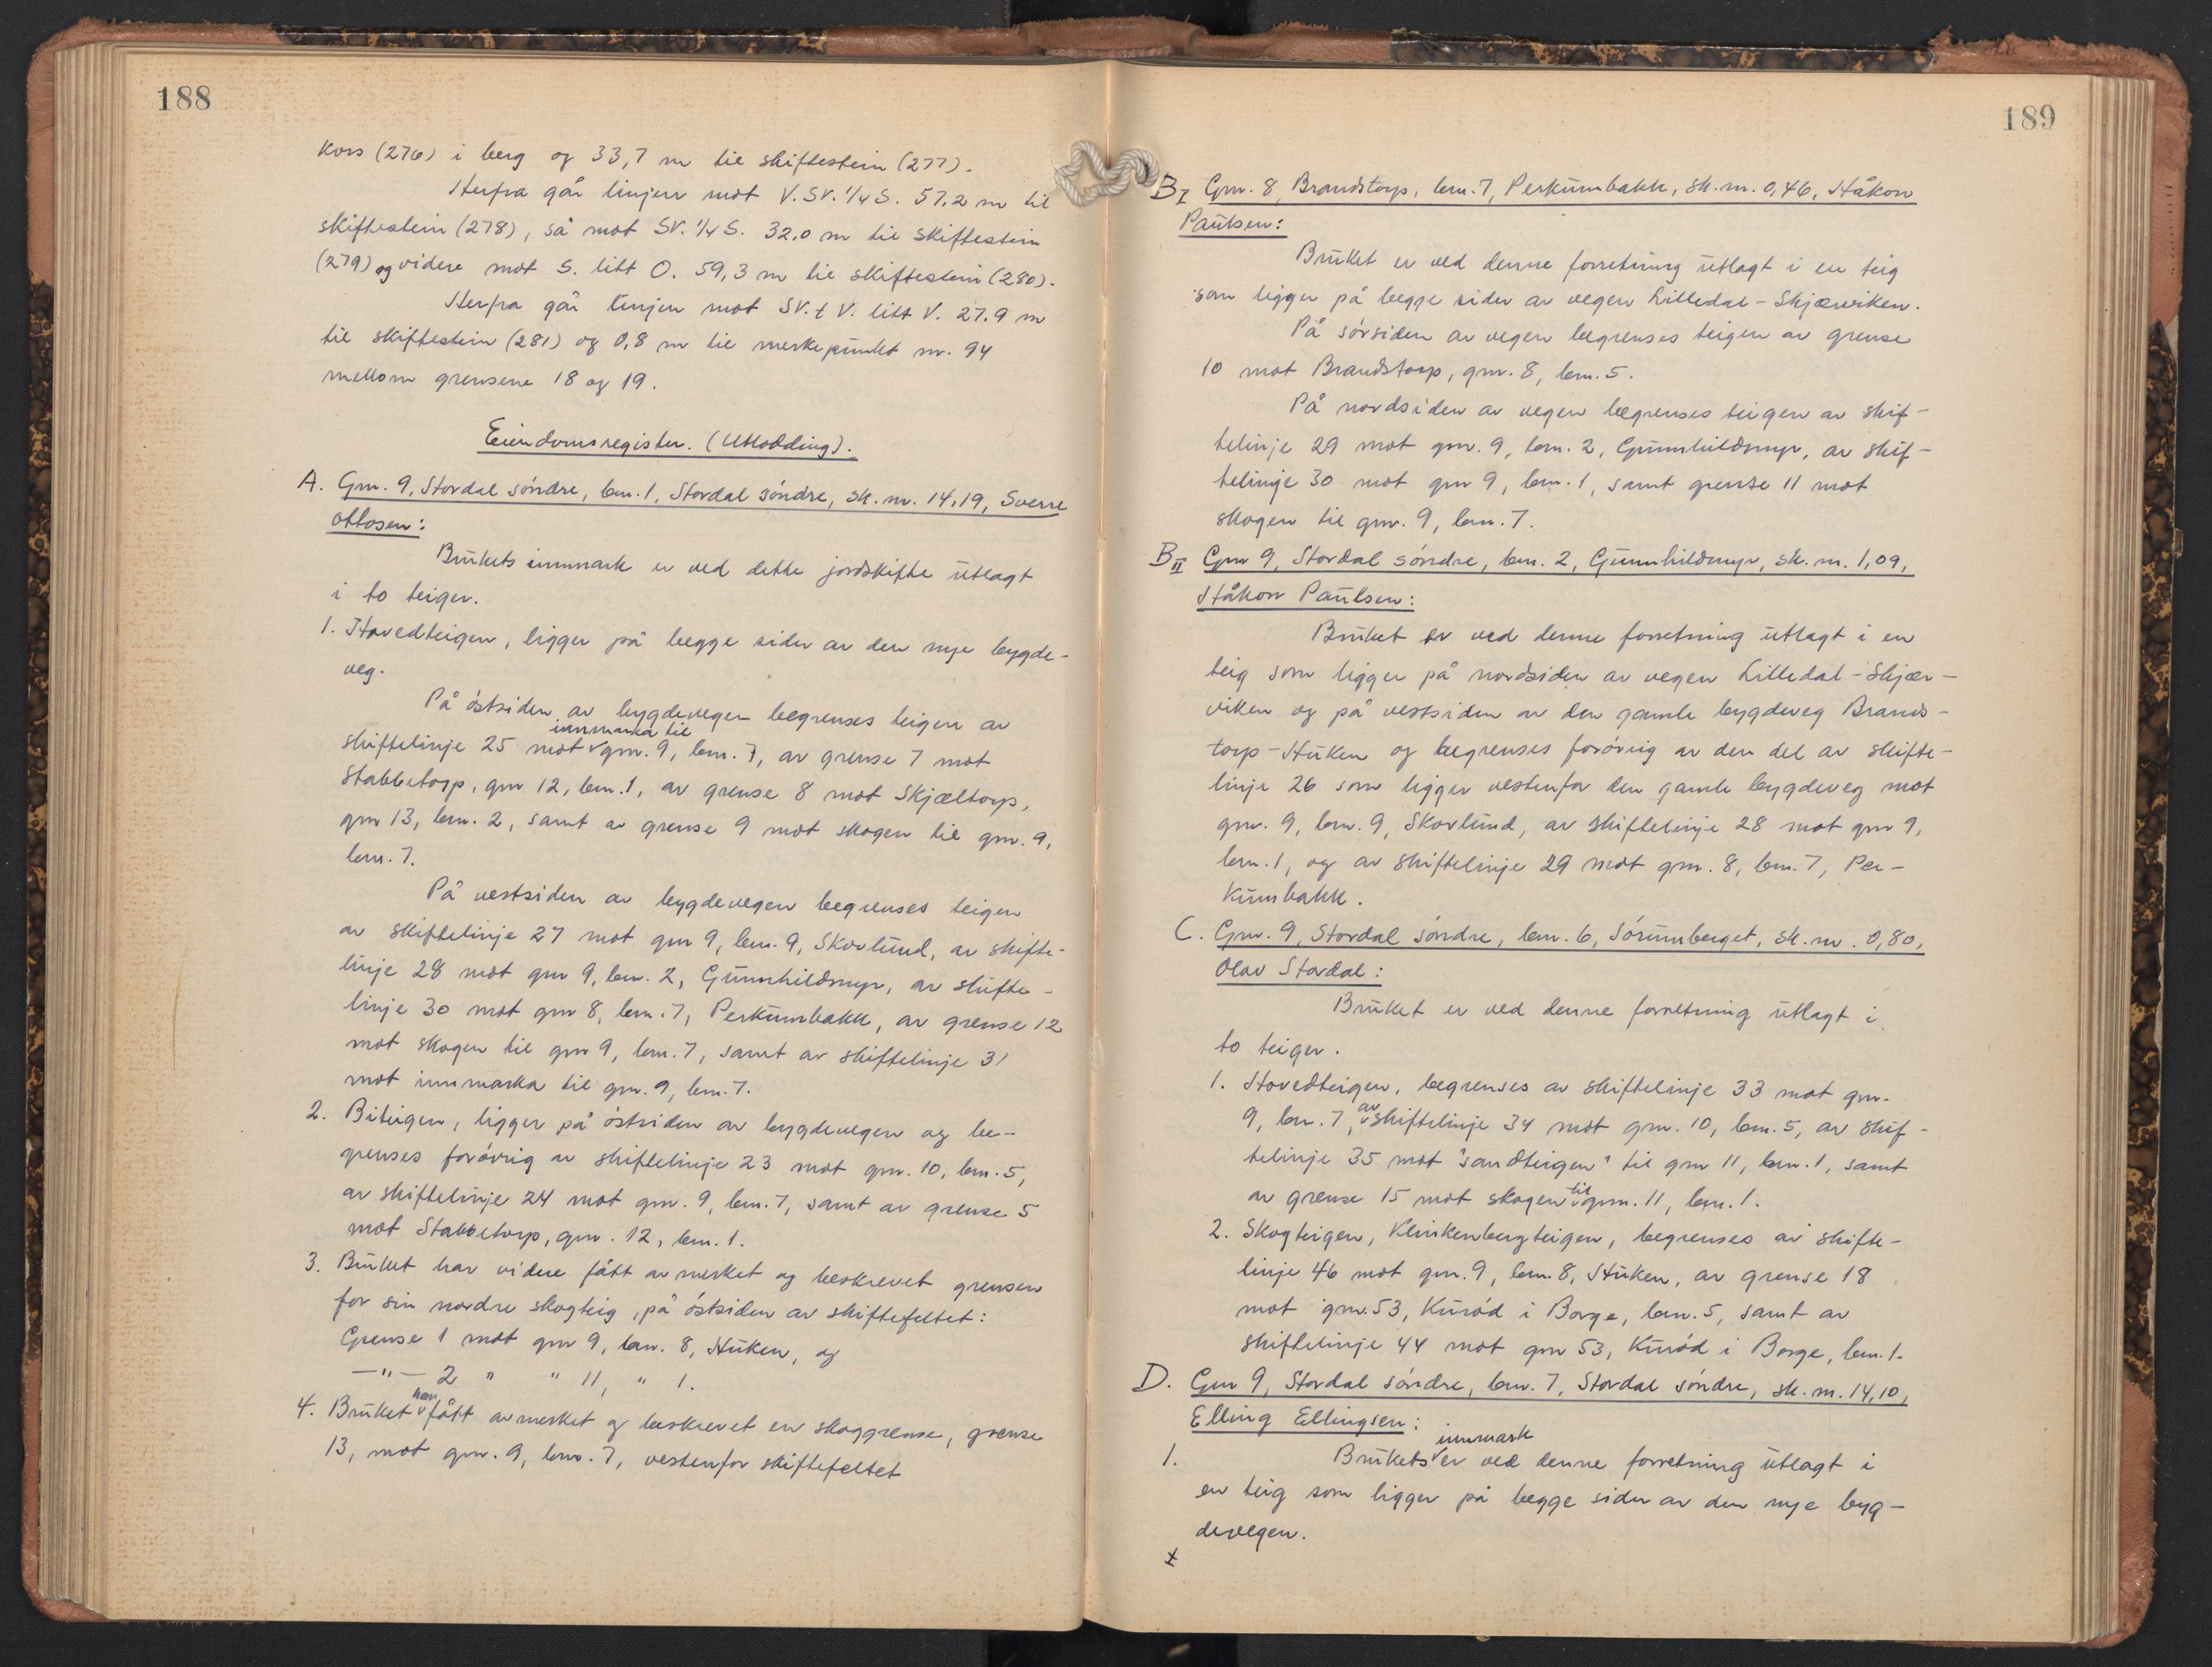 188
kors (276) i berg og 33,7 m til skiftestein (277).
Herfra går linjen mot V.SV.1/4 S. 57,2 m til
skiftestein (278), så mot SV. 1/4 S. 32,0 m til skiftestein
(279) og videre mot S. litt O. 59,3 m til skiftestein (280).
Herfra går linjen mot SV. t V. litt V. 27,9 m
til skiftestein (281) og 0,8 m til merkepunkt nr. 94
mellom grensene 18 og 19.
Eiendomsregister. (Utlodding).
A. Gnr. 9, Stordal søndre, bnr. 1, Stordal søndre, sk. m. 14,19, Sverre
Ottosen:
Brukets innmark er ved dette jordskifte utlagt
i to teiger.
1. Hovedteigen, ligger på begge sider av den nye bygde-
veg.
På østsiden av bygdevegen begrenses teigen av
skiftelinje 25 mot innmarka til gnr. 9, bnr. 7, av grense 7 mot
Stabbetorp, gnr 12, bnr. 1, av grense 8 mot Skjæltorp,
gnr 13, bnr. 2, samt av grense 9 mot skogen til gnr. 9,
bnr. 7.
På vestsiden av bygdevegen begrenses teigen
av skiftelinje 27 mot gnr 9, bnr. 9, Skovlund, av skifte-
linje 28 mot gnr 9, bnr. 2, Gunnhildmyr, av skifte-
linje 30 mot gnr 8, bnr. 7, Perkumbakk, av grense 12
mot skogen til gnr 9, bnr. 7, samt av skiftelinje 31
mot innmarka til gnr. 9, bnr. 7.
2. Biteigen, ligger på østsiden av bygdevegen og be-
grenses forøvrig av skiftelinje 23 mot gnr. 10, bnr. 5,
av skiftelinje 24 mot gnr. 9, bnr. 7, samt av grense 5
mot Stabbetorp, gnr. 12, bnr. 1.
3. Bruket har videre fått avmerket og beskrevet grensen
for sin nordre skogteig, på østsiden av skiftefeltet:
Grense 1 mot gnr 9, bnr. 8, Huken, og
—"— 2 " " 11, " 1.
4. Bruket har fått avmerket og beskrevet en skoggrense, grense
13, mot gnr. 9, bnr. 7, vestenfor skiftefeltet
189
B I Gnr. 8, Brandstorp, bnr. 7, Perkumbakk, sk. m. 0,46, Håkon
Paulsen:
Bruket er ved denne forretning utlagt i en teig
som ligger på begge sider av vegen Lilledal - Skjærviken.
På sørsiden av vegen begrenses teigen av grense
10 mot Brandstorp, gnr. 8, bnr. 5.
På nordsiden av vegen begrenses teigen av skif-
telinje 29 mot gnr. 9, bnr. 2, Gunnhildmyr, av skif-
telinje 30 mot gnr 9, bnr. 1, samt grense 11 mot
skogen til gnr. 9, bnr. 7.
B II Gnr 9, Stordal søndre, bnr. 2, Gunnhildmyr, sk. m. 1,09,
Håkon Paulsen:
Bruket er ved denne forretning utlagt i en
teig som ligger på nordsiden av vegen Lilledal - Skjær-
viken og på vestsiden av den gamle bygdeveg Brands-
torp - Huken og begrenses forøvrig av den del av skifte-
linje 26 som ligger vestenfor den gamle bygdeveg mot
gnr. 9, bnr. 9, Skovlund, av skiftelinje 28 mot gnr 9,
bnr. 1, og av skiftelinje 29 mot gnr. 8, bnr. 7, Per-
kumbakk.
C. Gnr. 9, Stordal søndre, bnr. 6, Sørumberget, sk. m. 0,80,
Olav Stordal:
Bruket er ved denne forretning utlagt i
to teiger.
1. Hovedteigen, begrenses av skiftelinje 33 mot gnr.
9, bnr. 7, av skiftelinje 34 mot gnr. 10, bnr. 5, av skif-
telinje 35 mot "sandteigen" til gnr 11, bnr. 1, samt
av grense 15 mot skogen til gnr. 11, bnr. 1.
2. Skogteigen, Klinkenbergteigen, begrenses av skifte-
linje 46 mot gnr. 9, bnr. 8, Huken, av grense 18
mot gnr. 53, Kurød i Borge, bnr. 5, samt av
skiftelinje 44 mot gnr 53, Kurød i Borge, bnr. 1.
D. Gnr 9, Stordal søndre, bnr. 7, Stordal søndre, sk. m. 14,10,
Elling Ellingsen:
1. Brukets innmark er ved denne forretning utlagt i
en teig som ligger på begge sider av den nye byg-
devegen.